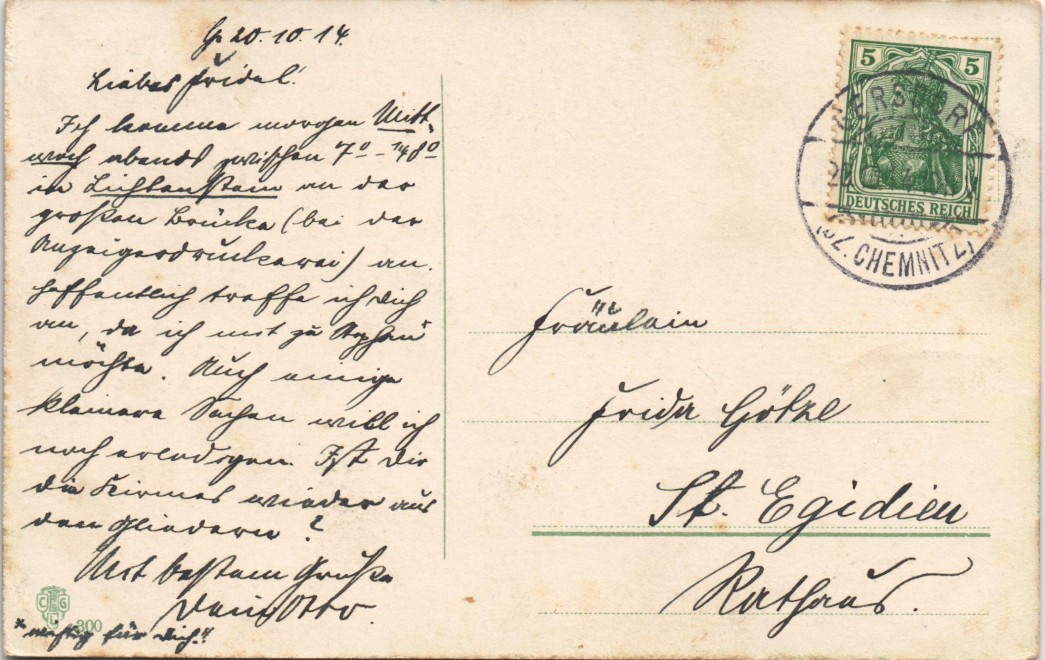 20.10.14.
Liebes Fridel!
Ich komme morgen Mitt-
woch abends zwischen 7⁰ - ¼8⁰
in Lichtenstein an der
großen Brücke (bei der
Anzeigerdruckerei) an.
Hoffentlich treffe ich Dich
an, da ich mit zu
möchte. Auch einige
kleinere Sachen will ich
noch erledigen. Ist Dir
die Kirmes wieder aus
den Gliedern?
Mit bestem Gruße
Dein Otto.
* wichtig für Dich!!
CGL
300
5 5
DEUTSCHES REICH
GERSDORF
(BZ. CHEMNITZ)
Fräulein
Frida Götze
St. Egidien
Rathaus.